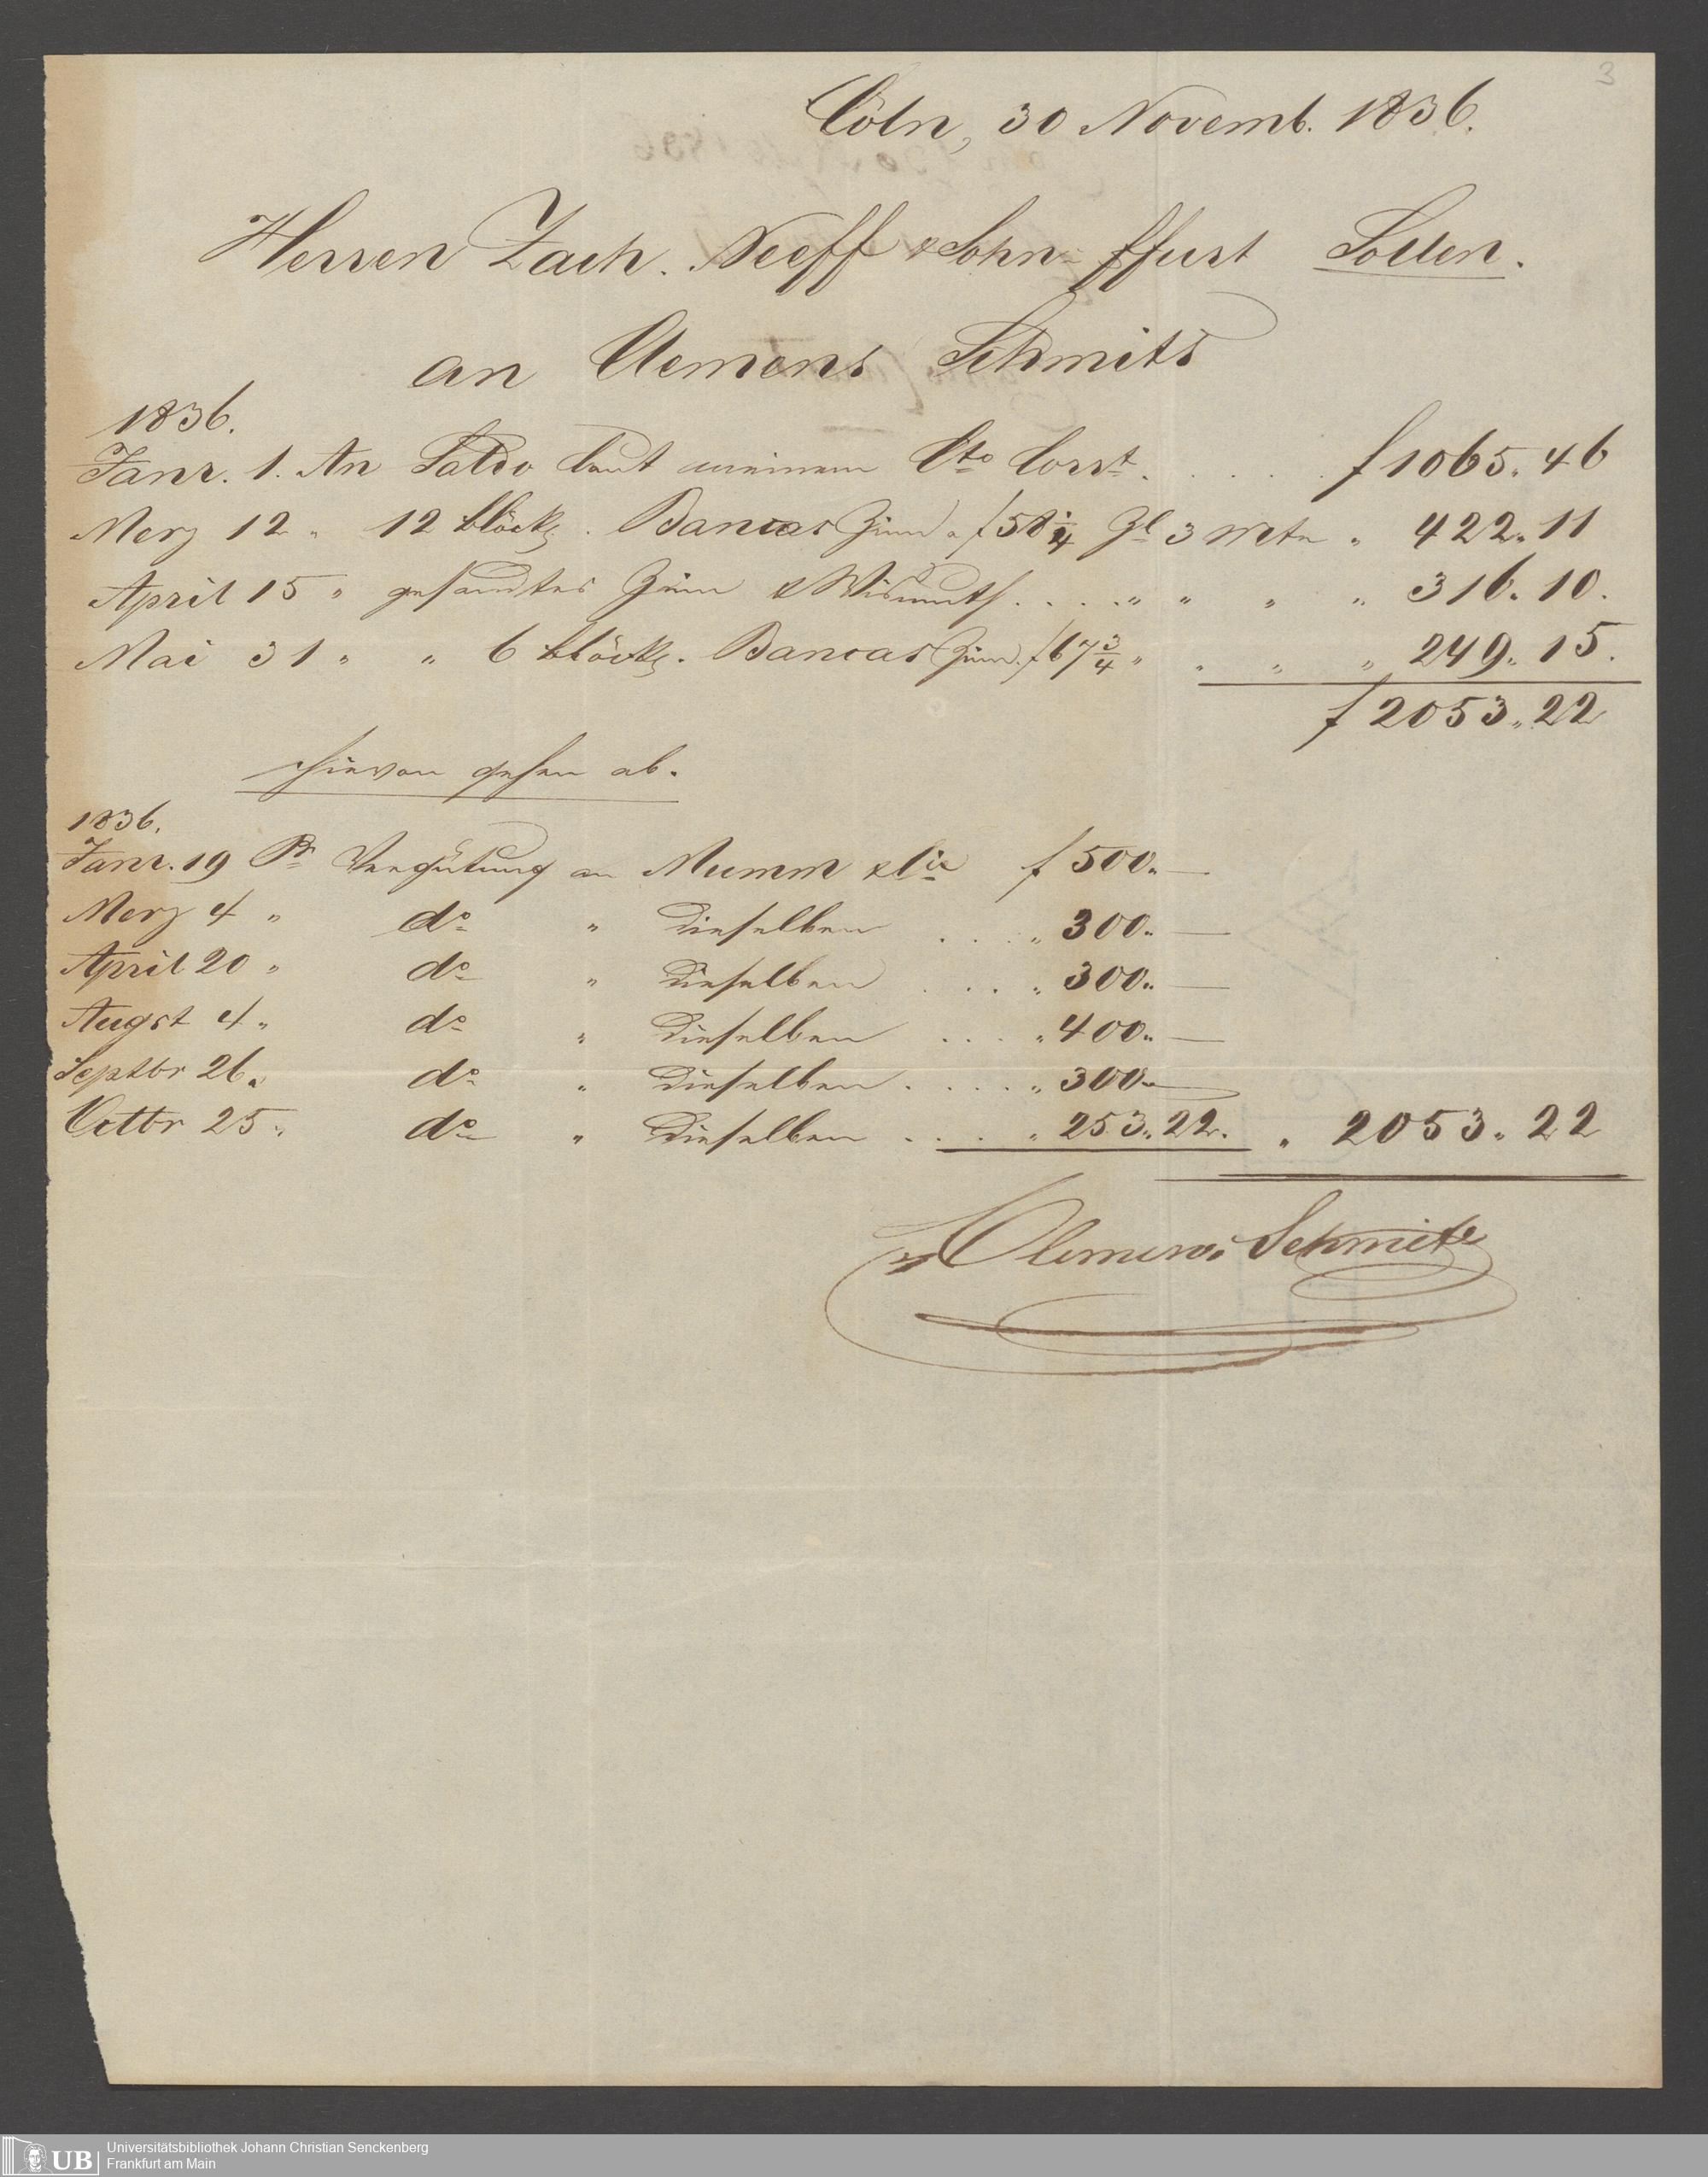 3
Cöln, 30 Novemb. 1836.
Herren Zach. Neeff & Sohn ffurt Sollen.
an Clemens Schmits
1836.
Janr. 1. An Saldo laut meinem Cto Corrt. . . . . f 1065.. 46
Merz 12 " 12 blöckg. Bancas Zinn a f 58 1/4 Zl 3 Mtn " 422.. 11
April 15 " gesandtes Zinn & Wismuth. . . . " " " " 316.. 10.
Mai 31 " " 6 blöckg. Bancas Zinn. f 67 3/4 " " " " 249.. 15.
f 2053.. 22
hievon gehen ab.
1836.
Janr. 19 Pr Vergütung an Mumm & Cie f 500.. —
Merz 4 " do " dieselben . . . " 300.. —
April 20 " do " dieselben . . . " 300.. —
Augst 4 " do " dieselben . . . " 400.. —
Septbr 26 " do " dieselben . . . . " 300.. —
Octbr 25 " do " dieselben . . . . " 253.. 22. " 2053.. 22
Clemens Schmits
UB Universitätsbibliothek Johann Christian Senckenberg
Frankfurt am Main